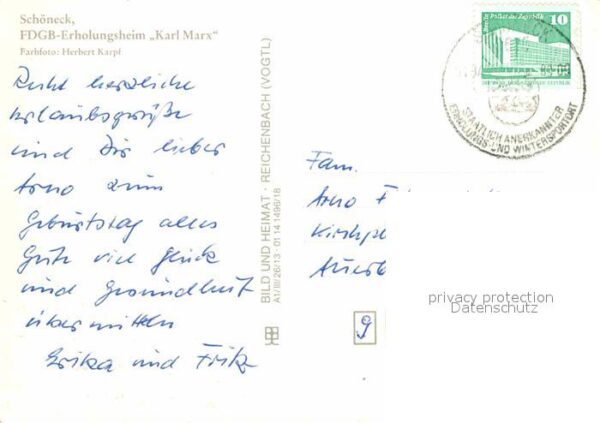 Schöneck,
FDGB-Erholungsheim „Karl Marx“
Farbfoto: Herbert Karpf
Recht herzliche
Urlaubsgrüße
und Dir lieber
Arno zum
Geburtstag alles
Gute viel Glück
und Gesundheit
übermitteln
Erika und Fritz
BILD UND HEIMAT · REICHENBACH (VOGTL)
A1/III/26/13 · 01 14 1496/18
10
STAATLICH ANERKANNTER
ERHOLUNGS- UND WINTERSPORTORT
Fam.
Arno
privacy protection
Datenschutz
g